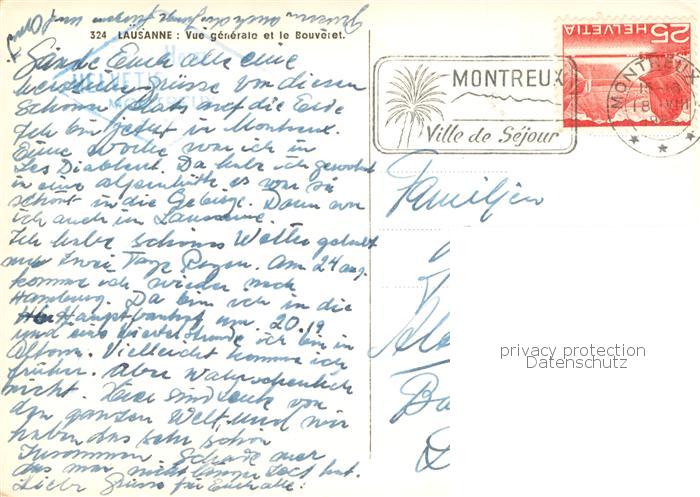 324 LAUSANNE : Vue générale et le Bouveret.
HELVETIA
25
MONTREUX
MONTREUX
Ville de Séjour
HELVETIA
Sende Euch alle eine
Grüsse von diesen
schönen Platz auf die Erde
Ich bin jetzt in Montreux.
Eine Woche war ich in
Les Diablerets. Da habe ich gewohnt
in eine es war so
schön in die Gebirge. Dann war
ich auch in Lausanne.
Ich habe schönes Wetter gehabt
nur zwei Tage Regen. Am 24 aug.
komme ich wieder nach
Hamburg. Da bin ich in die
Hauptbanhof um 20.19
und eins viertelstunde ich bin in
Altona. Vielleicht komme ich
früher. Aber Wahrscheinlich
nicht. Hier sind Leute von
den ganzen Welt, und wir
haben das sehr schön
zusammen. Schade nur
das man nicht Zeit hat.
Liebe Grüsse für Euch alle.
Familien
privacy protection
Datenschutz